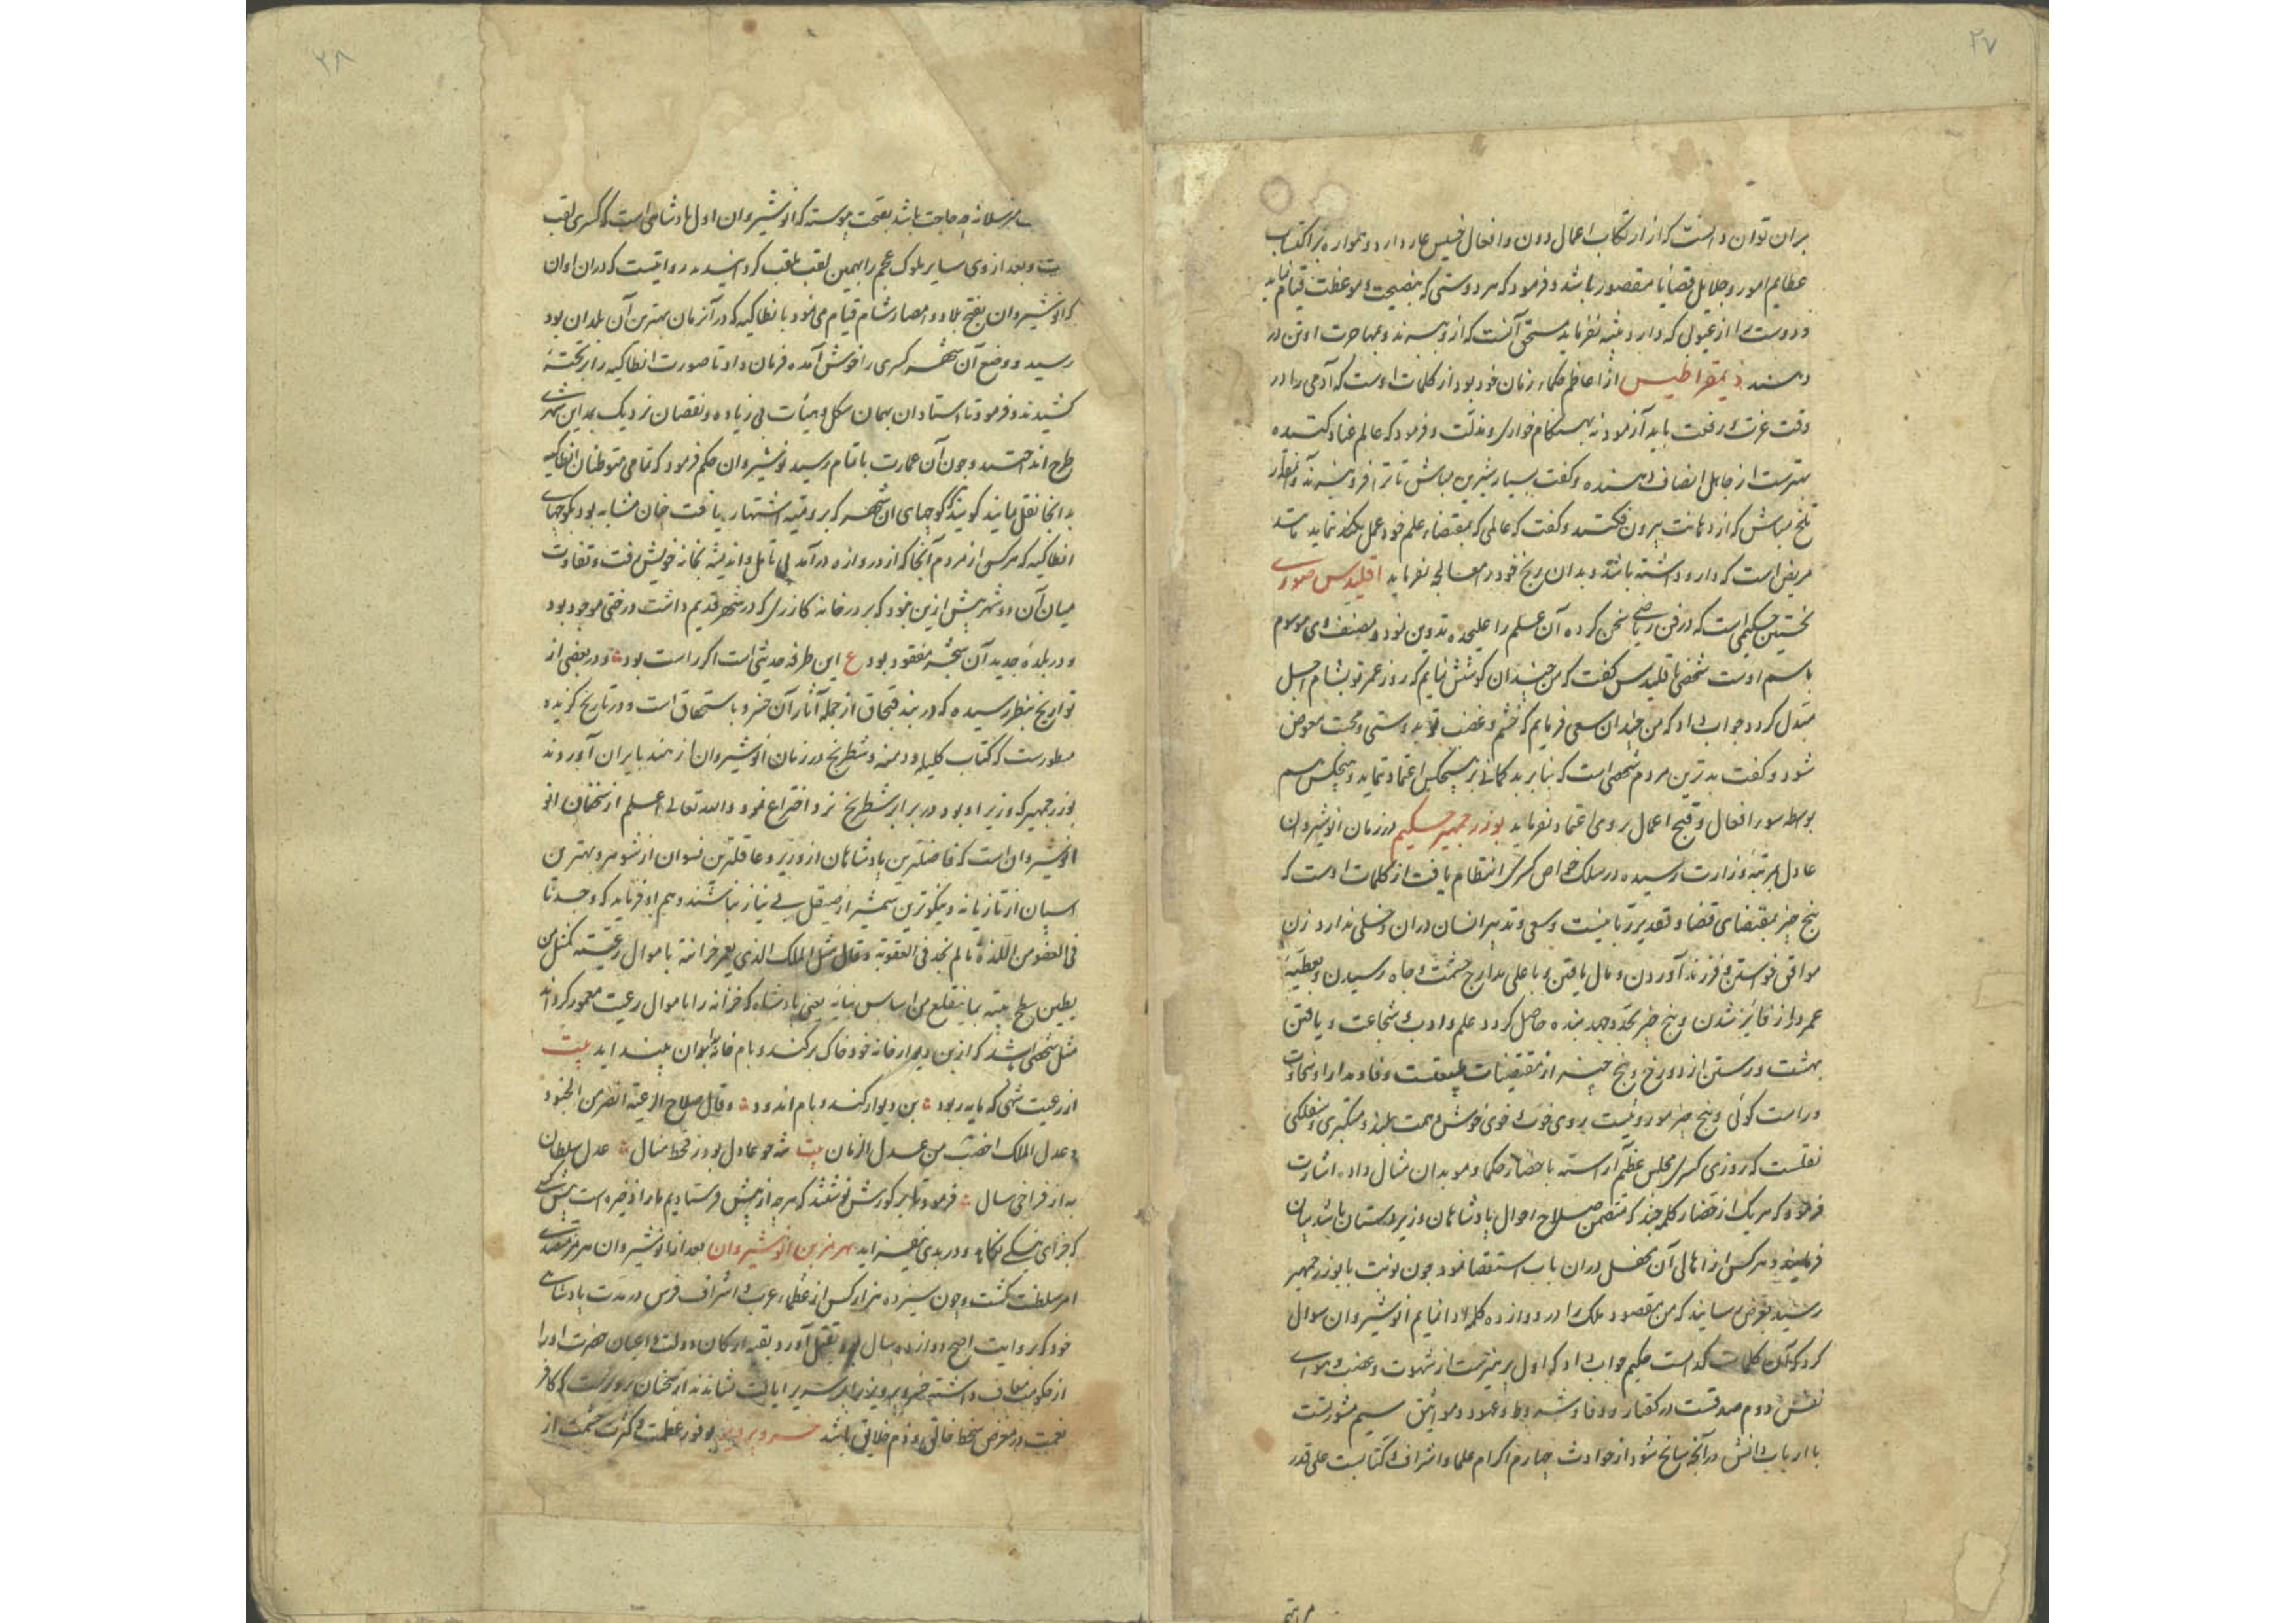 ۲۷
بران توان دانست که از ارتکاب اعمال دون و افعال خسیس عار دارد و همواره بر اکتساب
عظایم امور و جلایل قضایا مقصور باشد و فرمود که هر دوستی که بنصیحت و موعظت قیام نماید
و دوست را از عیوبی که دارد متنبه نفرماید مستحق آنست که از و بهاجرت او تن در
دهند ذیمقراطیس از اعاظم حکماء زمان خود بود از کلمات اوست که آدمی را در
وقت عزت و رفعت باید آزمود نه بهنگام خواری و مذلت و فرمود که عالم عناد کننده
بهترست از جاهل انصاف دهنده و گفت بسیار شیرین مباش تا ترا فرو نبرند و آنمقدار
تلخ مباش که از دهانت بیرون فکنند و گفت که عالمی که بمقتضاء علم خود عمل نکند نماید
مریض است که دارو داشته باشد و بدان رنج خود را معالجه نفرماید اقلیدس صوری
نخستین حکیمی است که در فن ریاضی سخن کرده آن علم را علیحده تدوین نمود و مصنف وی موسوم
باسم اوست شخصی باقلیدس گفت که من چندان کوشش نمایم که روز عمر تو بشام اجل
مبدل گردد جواب داد که من چندان سعی فرمایم که خشم و غضب تو بدوستی و محبت معوض
شود و گفت بدترین مردم شخصی است که بنابر بدگمانی بر هیچکس اعتماد ننماید و هیچکس هم
بواسطه سوء افعال و قبح اعمال بر وی اعتماد نفرماید بوزرجمهر حکیم در زمان انوشیروان
عادل بمرتبه وزارت رسیده در سلک خواص کسری انتظام یافت از کلمات اوست که
پنج چیز بمقتضای قضا و تقدیر ربانیست و سعی و تدبیر انسان دران دخلی ندارد زن
موافق خواستن و فرزند آوردن و مال یافتن و باعلی مدارج حشمت و جاه رسیدن و بعطیه
عمر دراز فایز شدن و پنج چیز بجد و جهد بنده حاصل گردد علم و ادب و شجاعت و یافتن
بهشت و رستن از دوزخ و پنج چیز از مقتضیات طبیعتست وفا و مدارا و سخاوت
و راست گوئی و پنج چیز موروثیست روی خوب و خوی خوش و همت بلند و متکبری و سفلگی
نقلست که روزی کسری مجلس عظیم آراسته باحضار حکما و موبدان مثال داد و اشارت
فرمود که هر یک از حضار کلمه چند که متضمن صلاح احوال پادشاهان و زیردستان باشد بیان
فرمایند و هر کس از اهالی آن محفل دران باب استقصا نمود چون نوبت ببوزرجمهر
رسید بعرض رسانید که من مقصود ملک را در دوازده کلمه ادا نمایم انوشیروان سوال
کرد که آن کلمات کدامست حکیم جواب داد که اول پرهیزست از شهوت و غضب و هوای
نفس دوم صدقست در گفتار و وفا و شروط و عهود و مواثیق سیم مشورتست
با ارباب دانش در آنچه سانح شود از حوادث چهارم اکرام علما و اشراف و کتابست علی قدر
۲۸
چه حاجت باشد بصحت پیوسته که انوشیروان اول پادشاهی است که کسری لقب
و بعد از وی سایر ملوک عجم را بهمین لقب ملقب گردانیدند روایتست که دران اوان
که انوشیروان بفتح بلاد و امصار شام قیام می نمود بانطاکیه که در آنزمان بهترین آن بلدان بود
رسید و وضع آن شهر کسری را خوش آمده فرمان داد تا صورت انطاکیه را بر تخته
کشیدند و فرمود تا استادان بهمان شکل و هیأت بی زیاده و نقصان نزدیک بمداین شهری
طرح انداختند و چون آن عمارت باتمام رسید نوشیروان حکم فرمود که تمامی متوطنان انطاکیه
بدانجا نقل نمایند گویند کوچهای آن شهر که برومیه اشتهار یافت چنان مشابه بود بکوچهای
انطاکیه که هر کس از مردم آنجا که از دروازه درآمد بی تامل و اندیشه بخانه خویش رفت و تفاوت
میان آن دو شهر بیش ازین نبود که بر در خانه گازری که در شهر قدیم داشت درختی موجود بود
و در بلده جدید آن شجره مفقود بود ع این طرفه حدیثی است اگر راست بود و در بعضی از
تواریخ بنظر رسیده که دربند قبچاق از جمله آثار آن خسرو باستحقاق است و در تاریخ گزیده
مسطورست که کتاب کلیله و دمنه و شطرنج در زمان انوشیروان از هند بایران آوردند
بوزرجمهر که وزیر او بود در برابر شطرنج نرد اختراع نمود والله تعالی اعلم از سخنان انو
انوشیروان است که فاضلترین پادشاهان از وزیر و عاقلترین نسوان از شوهر و بهترین
اسبان از تازیانه و نیکوترین شمشیر از صیقل بی نیاز نباشند و هم او فرماید که وجدنا
فی العفو من اللذة ما لم نجد فی العقوبة و قال مثل الملک الذی یعمر خزانته باموال رعیته کمثل من
یطین سطح بیته بما یقتلع من اساس بنایه یعنی پادشاه که خزانه را باموال رعیت معمور گرداند
مثل شخصی باشد که از بن دیوار خانه خود خاک برکند و بام خانه بدان بیند اید بیت
از رعیت شهی که مایه ربود بن دیوار کند و بام اندود و قال صلاح الرعیة انصر من الجنود
و عدل الملک اخصب من عدل الزمان بیت شه چو عادل بود ز قحط منال عدل سلطان
به از فراخی سال فرمود تا بر گورش نوشتند که هر چه از پیش فرستادیم ما را ذخیره است پیش کسی
که جزای نیکی نکاهد و در بدی نیفزاید هرمز بن انوشیروان بعد از انوشیروان هرمز متصدی
امر سلطنت گشت و چون سیزده هزار کس از عظماء عرب و اشراف فرس در مدت پادشاهی
خود که بروایت اصح دوازده سال بود بقتل آورد بقیه ارکان دولت و اعیان حضرت او را
از حکومت معاف داشته خسرو پرویز را بر سریر ایالت نشاندند از سخنان هرمزست که کافر
نعمت در معرض سخط خالق و ذم خلایق باشد خسرو پرویز بوفور عظمت و کثرت حشمت از